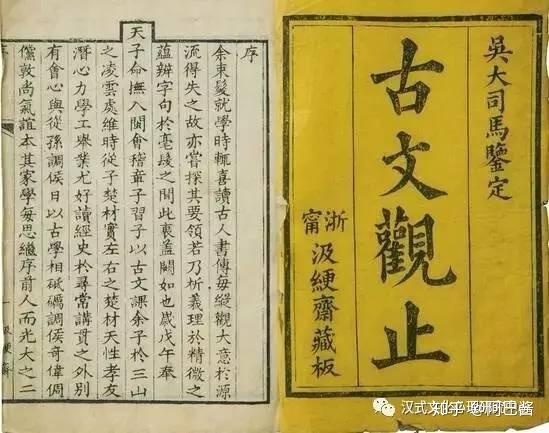 吳大司馬鑒定
古文觀止
浙甯
汲綆齋藏板
序
余束髮就學時輒喜讀古人書傳每縱觀大意於源
流得失之故亦嘗探其要領若乃析義理於精微之
蘊辨字句於毫髮之間此衷蓋闕如也歲戊午奉
天子命撫八閩會稽章子習子以古文課余子於三山
之凌雲處維時從子楚材實左右之楚材天性孝友
潛心力學工舉業尤好讀經史於尋常講貫之外別
有會心與從孫調侯日以古學相砥礪調侯奇偉倜
儻敦尚氣誼本其家學每思繼序前人而光大之二
序
一 汲綆齋
汉式文化
知乎 @阿巴酱